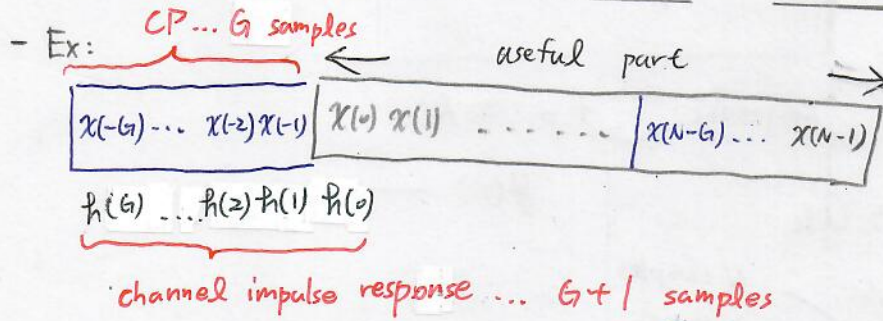 CP... G samples
- Ex: useful part
x(-G) ... x(-2) x(-1) x(0) x(1) ....... x(N-G) ... x(N-1)
h(G) .... h(2) h(1) h(0)
channel impulse response ... G+1 samples